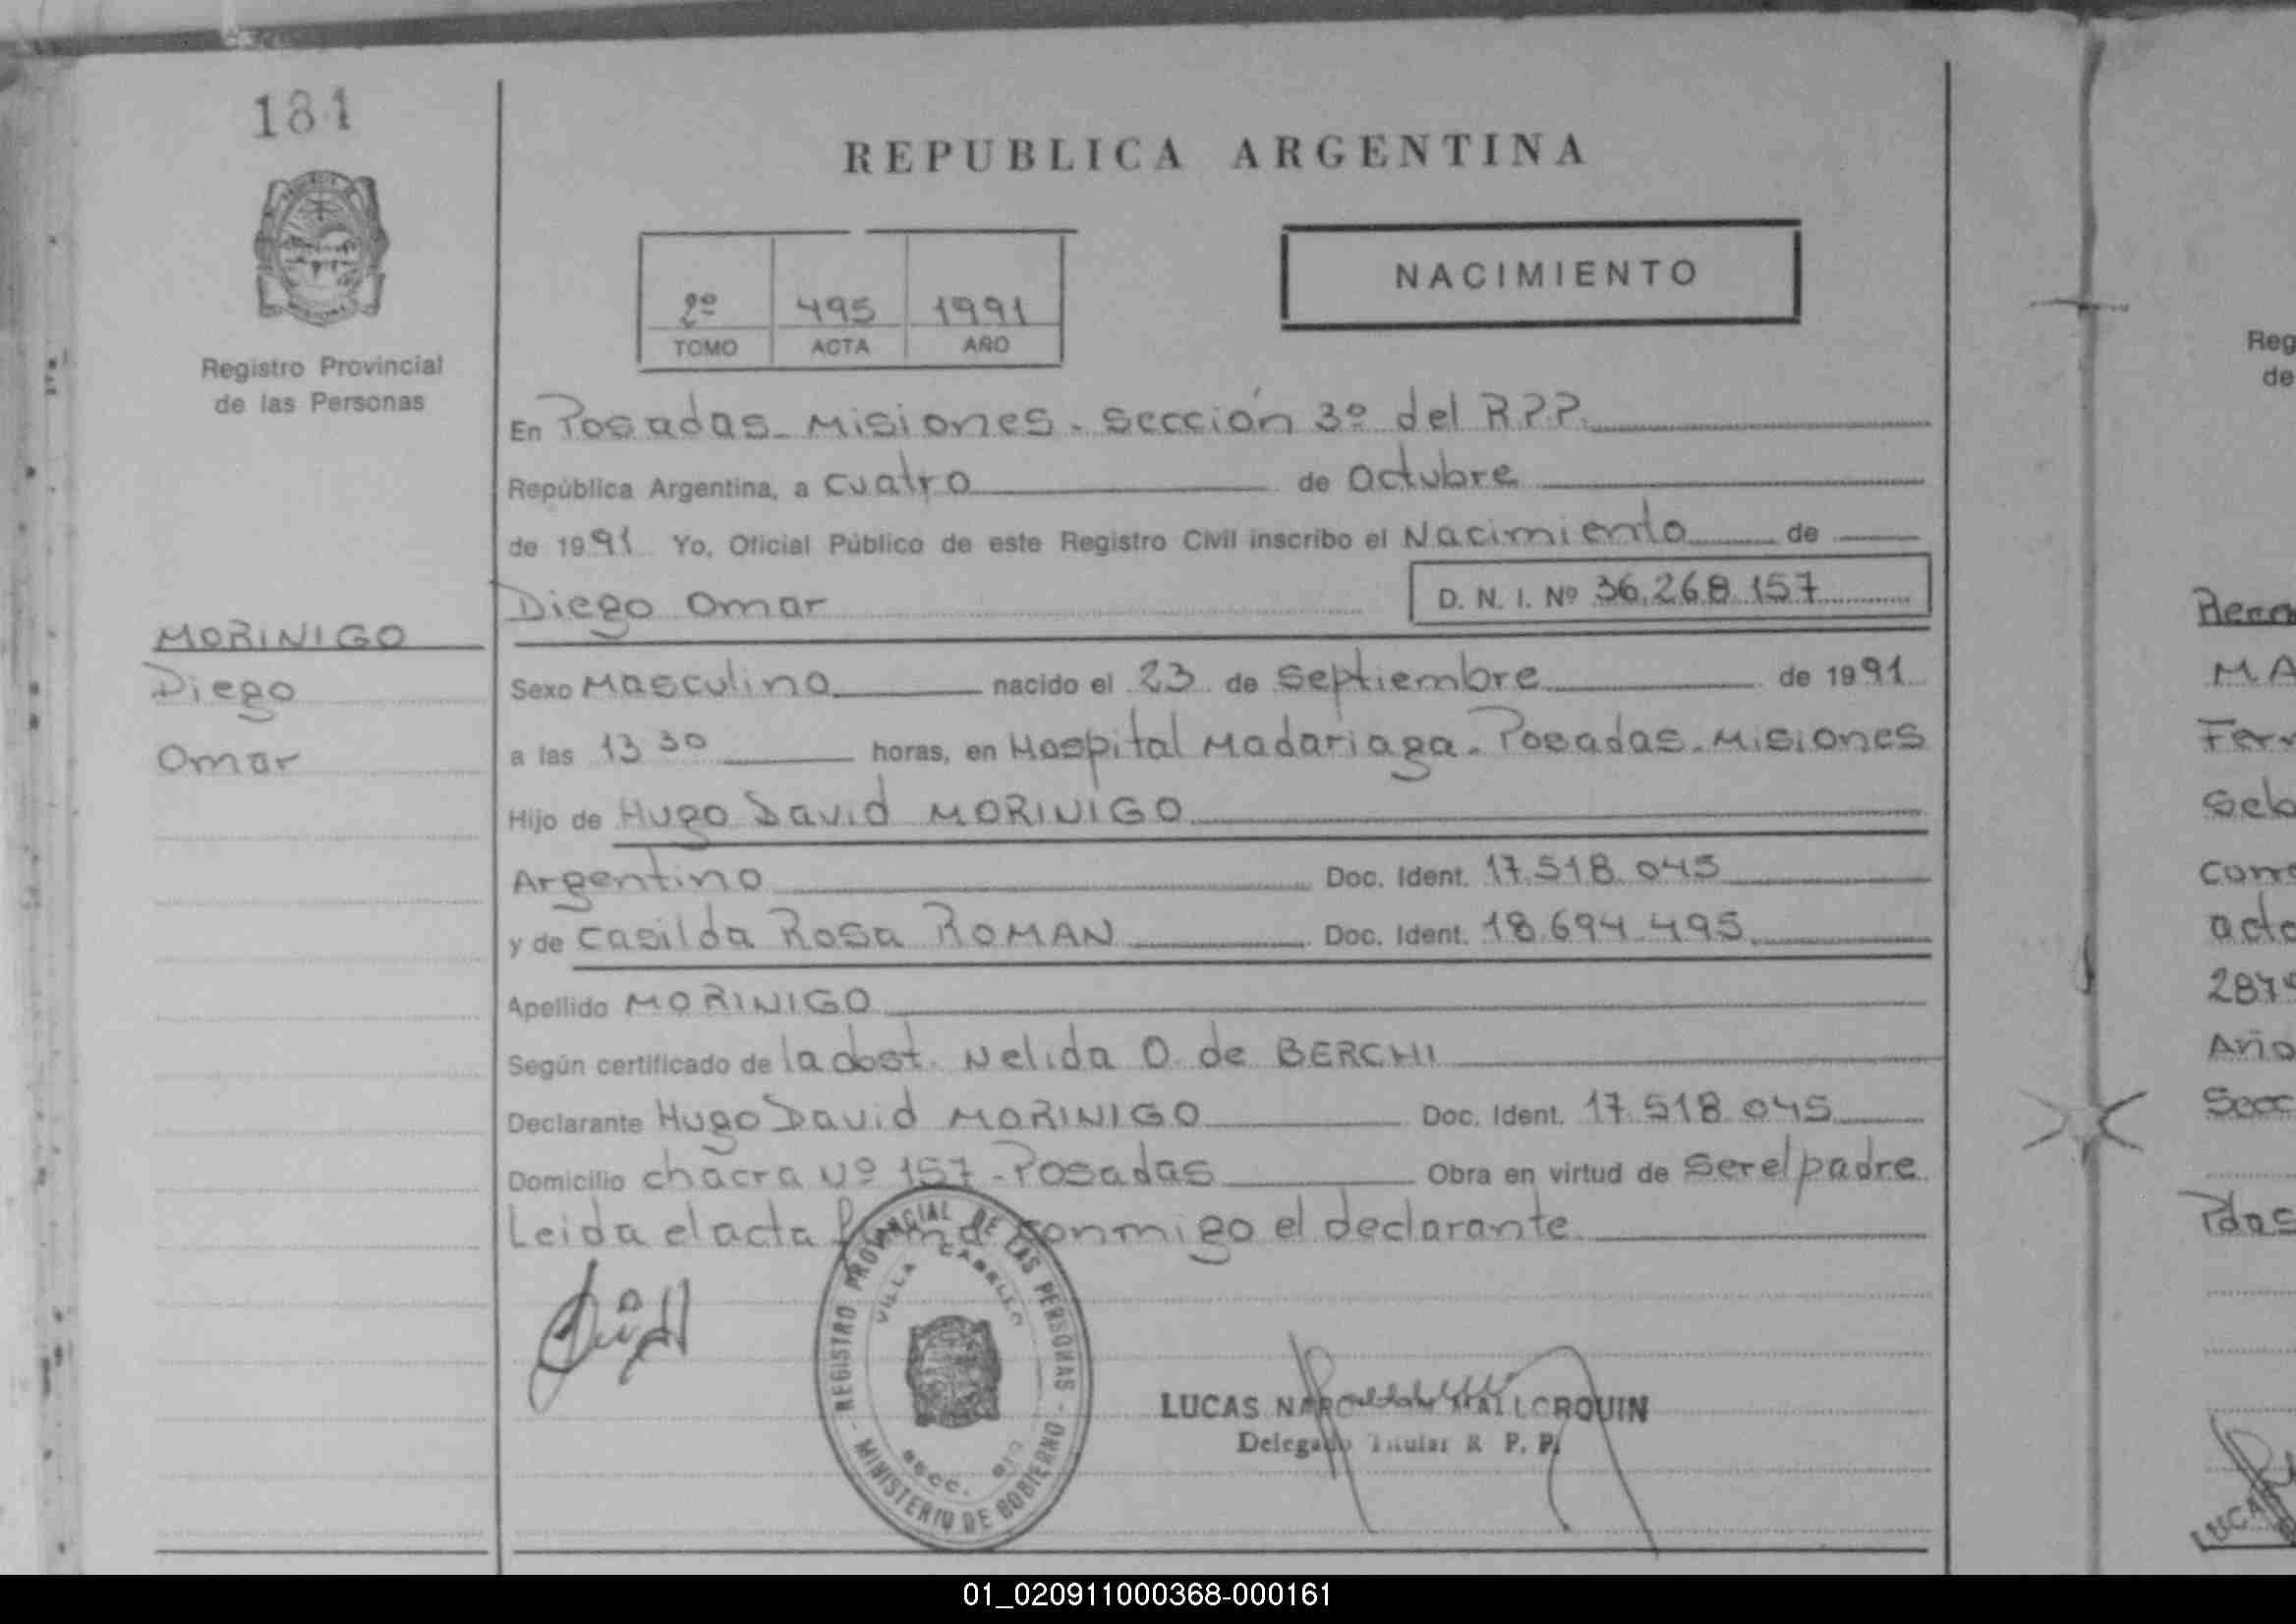 181
Registro Provincial
de las Personas
MORINIGO
Diego
Omar
REPUBLICA ARGENTINA
2º 495 1991
TOMO ACTA AÑO
NACIMIENTO
En Posadas - Misiones - Sección 3º del R.P.P.
República Argentina, a cuatro de Octubre
de 1991 Yo, Oficial Público de este Registro Civil inscribo el Nacimiento de
Diego Omar D. N. I. Nº 36.268.157
Sexo Masculino nacido el 23 de Septiembre de 1991
a las 13 30 horas, en Hospital Madariaga - Posadas - Misiones
Hijo de Hugo David MORINIGO
Argentino Doc. Ident. 17.518.045
y de Casilda Rosa ROMAN Doc. Ident. 18.694.495
Apellido MORINIGO
Según certificado de la obst. Nelida O. de BERCHI
Declarante Hugo David MORINIGO Doc. Ident. 17.518.045
Domicilio chacra Nº 157 - Posadas Obra en virtud de ser el padre
Leida el acta firma conmigo el declarante
REGISTRO PROVINCIAL DE LAS PERSONAS - MINISTERIO DE GOBIERNO -
VILLA CABELLO
SECC.
LUCAS MALLORQUIN
Delegado Titular R. P. P.
Reg
de
MA
Fer
Seb
acta
287
Año
Secc
Pdas
LUCA
01_020911000368-000161